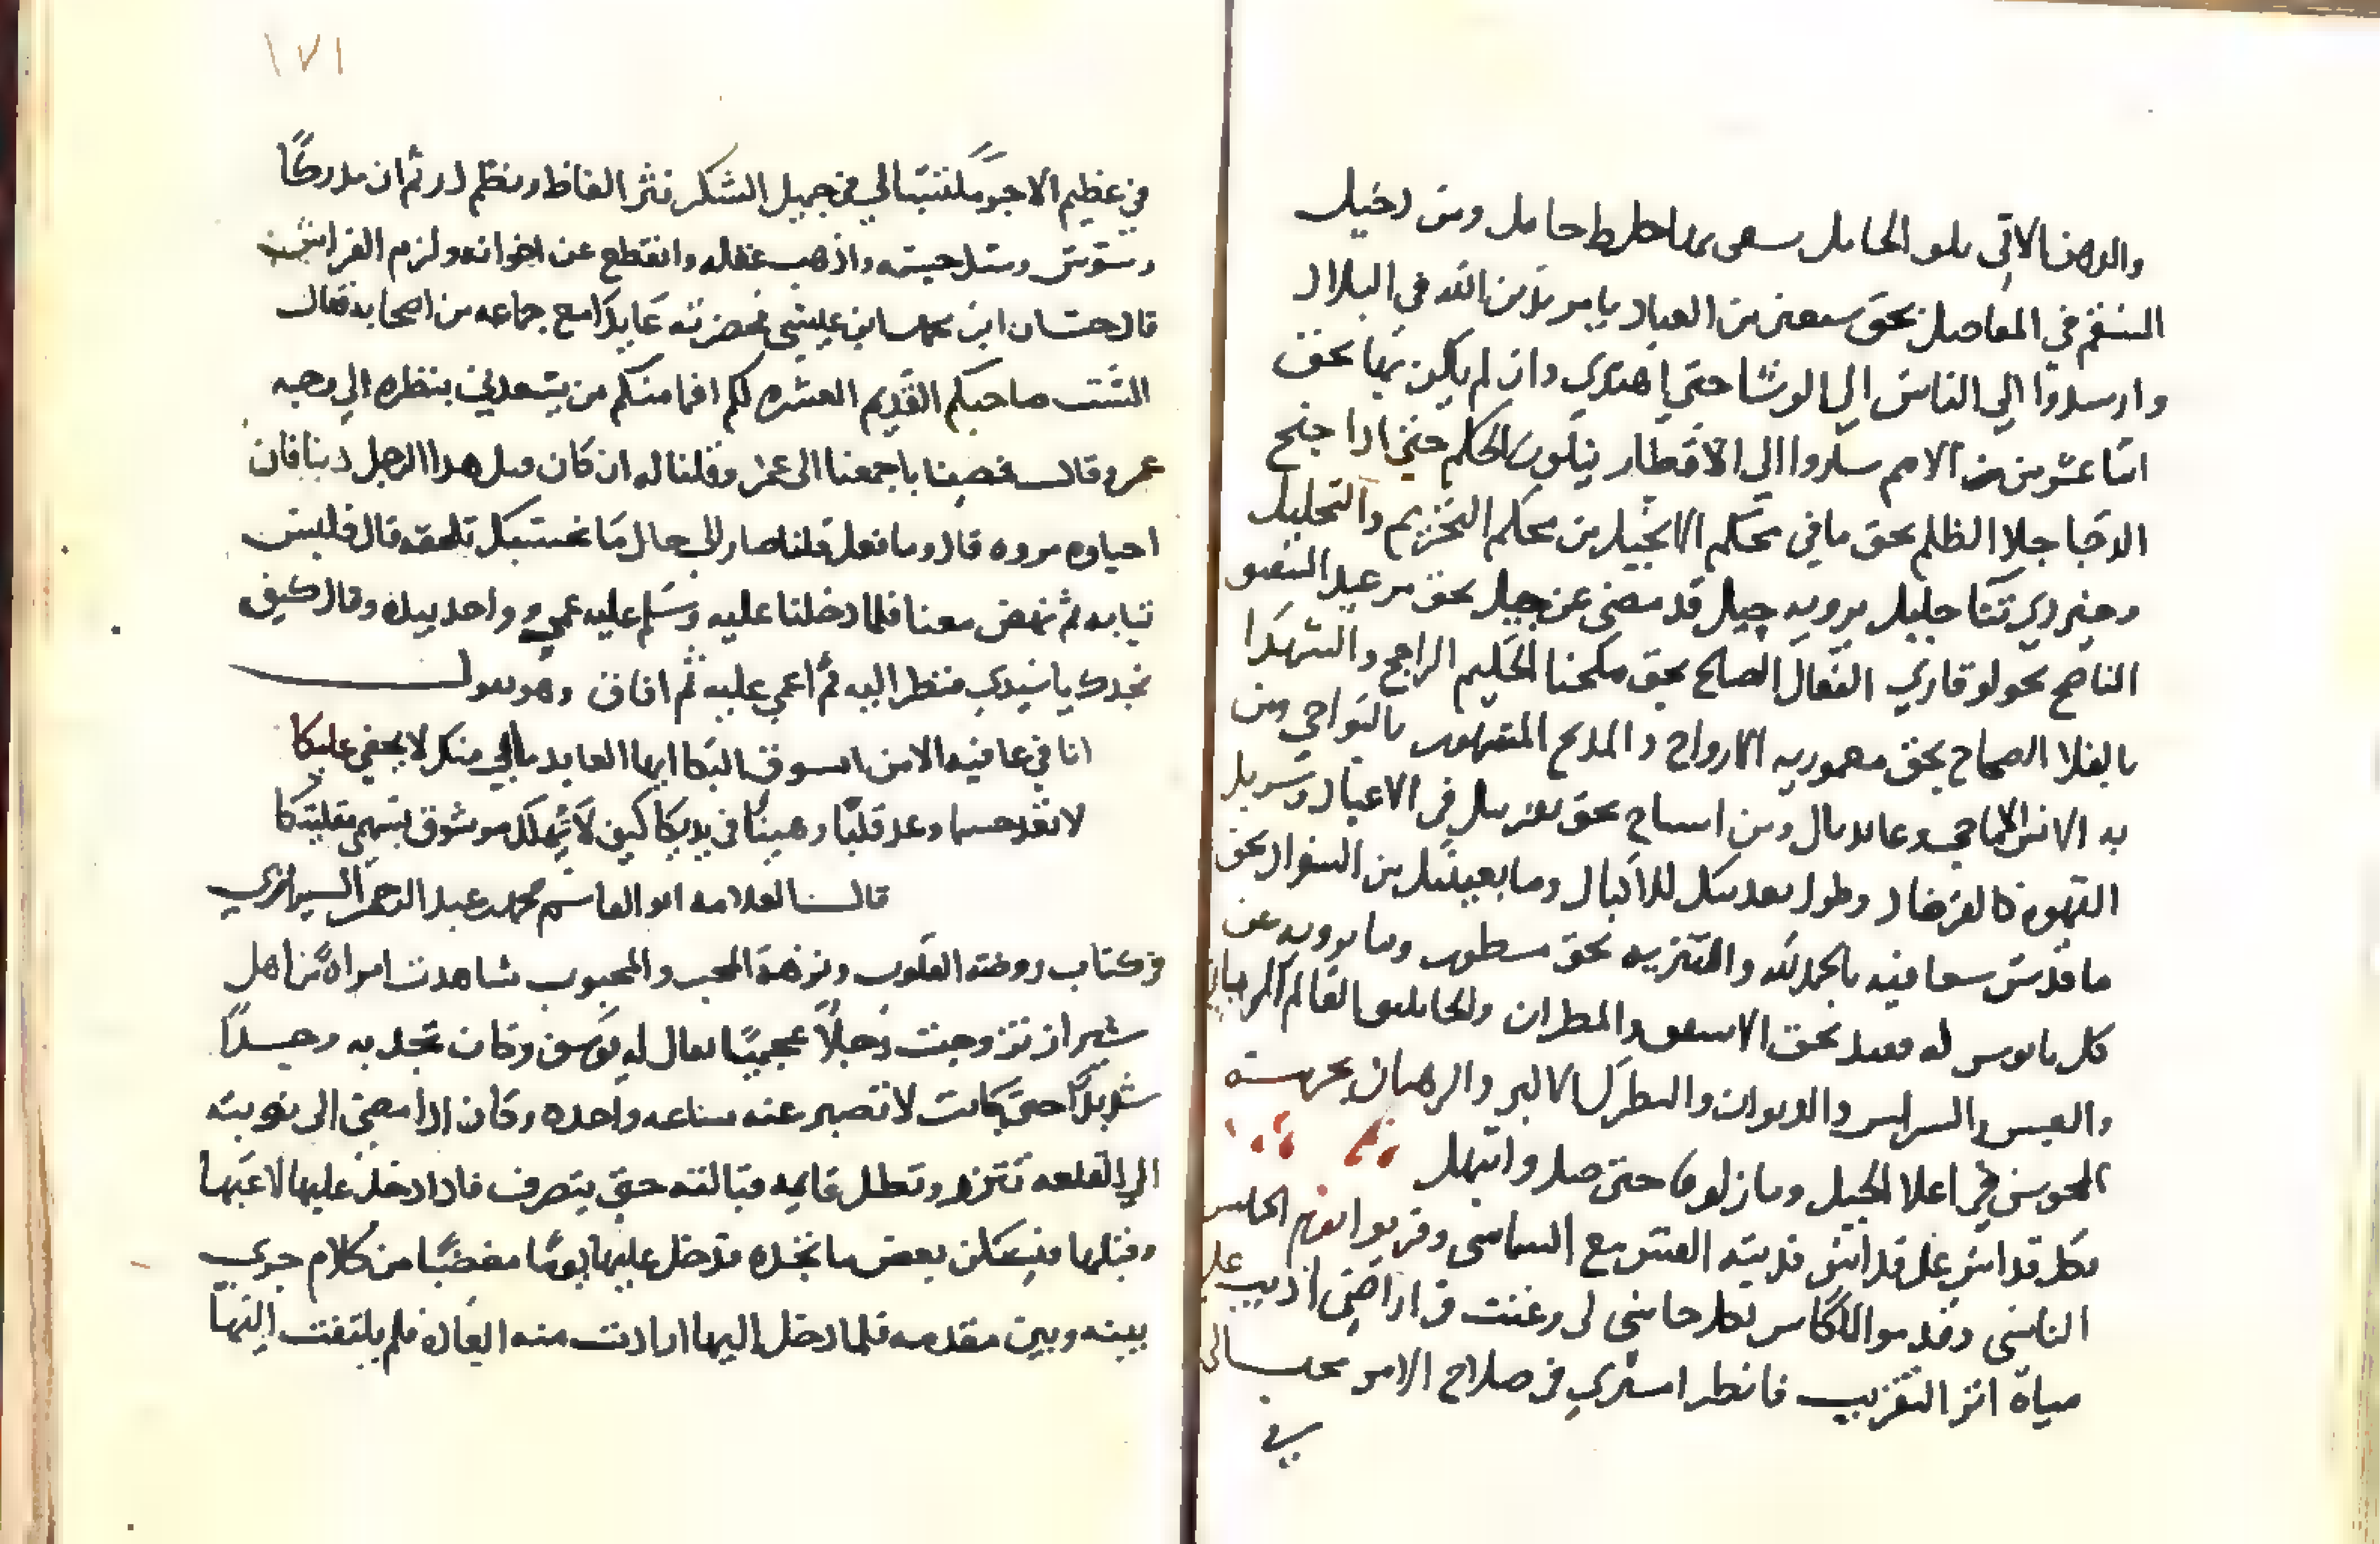 والدهن الاتي ملو الحامل سعى بها حاط حامل ومن دخيل
السقم في المفاصل بحق سبعين من العباد يا مريد من الله في البلاد
وارسلوا الي الناس الي الوشا حتي اهتدي وان لم يكن بها بحق
اثنا عشر من الامم ساروا الي الاقطار يتلون الحكم حتي اذا جنح
الدجا جلا الظلم بحق ما في محكم الانجيل من محكم التحريم والتحليل
وخبر ذي نبا جليل يرويه جيل قد مضى عن جيل بحق مرعيد الشفيق
الناصح بحق لوقا ذي الفعال الصالح بحق مليخا الحكيم الراجح والشهدا
بالفلا الصحاصح بحق معموريه الارواح والمذبح المشهور بالنواحي ومن
به الانس الماحي وعابد بال ومن اسساح بحق تقريبك في الاعياد وشربك
القهوة كالفرصاد وطول تعديبك للاكباد وما بعينيك من السواد بحق
ما قدس سعا فيه بالحمد لله والتنزيه بحق مسطور وما يرويه عن
كل ناموس له فقيه بحق الاسقف والمطران والجاثليق العالم الرباني
والقس والشماس والديراني والبطرك الاكبر والرهبان بحرمة
المحبوس في اعلا الجبل ومار لوقا حتى صلى وابتهل
بكل قداس علي قداس قدسه القس مع الشماس وقربوا يوم الخميس
الناسي وقدموا الكاس لكل حاسي لي رغبت في ارضي اديب علي
مياة اثر التقريب فانظر اسيري في صلاح الامر محتسب الي
في
١٧١
في عظيم الاجر ملتفتا لي في جميل الشكر نثر الفاظ ونظم در ثم ان مدركا
وسوس وسل جسمه واذهب عقله وانقطع عن اخوانه ولزم الفراش
قال حسان ابن محمد ابن عيسي فحضرته عايدا مع جماعه من اصحابه فقال
الست صاحبكم القديم العشره لكم افما منكم من يسعدني بنظره الي وجه
عمرو قال فمضينا باجمعنا الى عمرو وقلنا له ان كان قتل هدا الرجل دينا فان
احياوه مروه قال وما فعل قلنا صار الي حال ما نحسبك تلحقه قال فلبس
ثيابه ثم نهض معنا فلما دخلنا عليه وسلم عليه عمرو واخد بيده وقال كيف
نجدك يا سيدي فنظر اليه ثم اغمي عليه ثم افاق وهو يقول
انا في عافية الا من الشوق اليكا ايها العايد ما بي منك لا يخفي عليكا
لا تعد جسما وعد قلبا رهينا في يديكا كيف لا يهلك مرشوق بسهمي مقلتيكا
قال العلامه ابو القاسم محمد عبد الرحمن الشيرازي
في كتاب روضة القلوب ونزهة المحب والمحبوب شاهدت امراة من اهل
شيراز تزوجت رجلا عجميا يقال له يوسف وكان تجد به وجدا
شديدا حتي كانت لا تصبر عنه ساعه واحده وكان ادا مضي الي نوبته
الي القلعه تتزر وتطل قايمه قبالته حتي ينصرف فادا دخل عليها لاعبها
وقبلها فيسكن بعض ما تجده فدخل عليها يوما مغضبا من كلام جري
بينه وبين مقدمه فلما دخل اليها ارادت منه العاده فلم يلتفت اليها